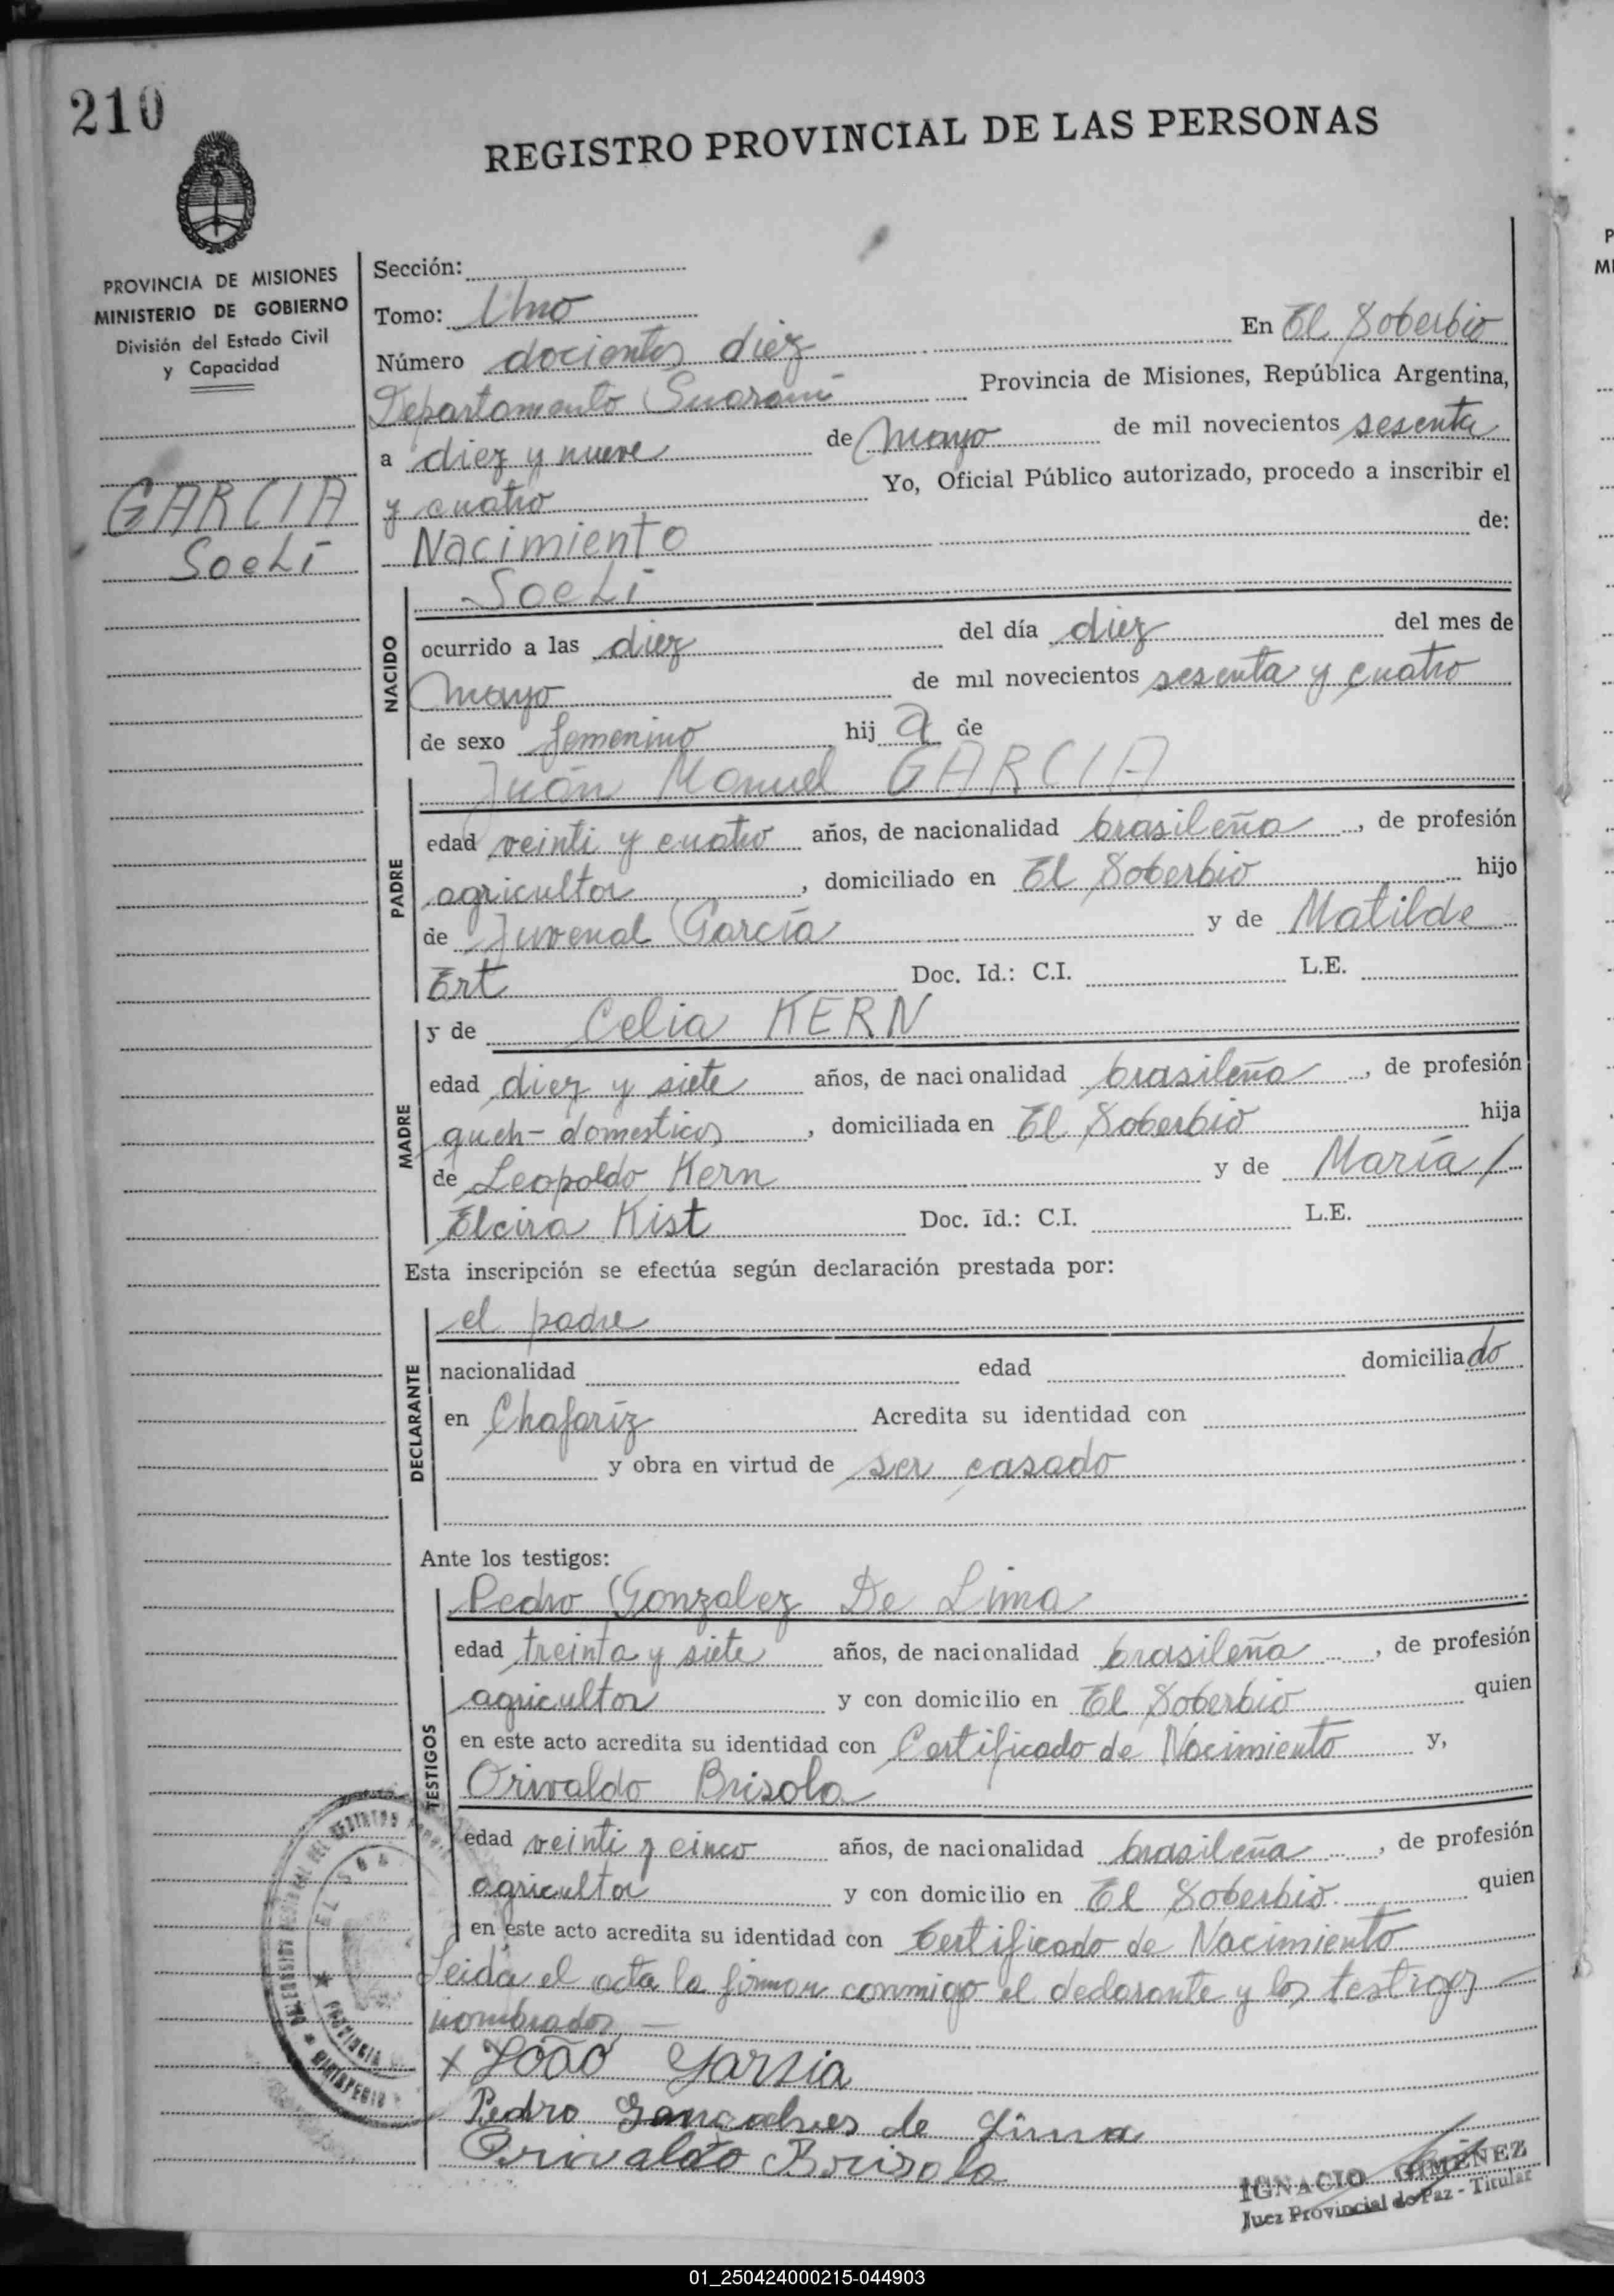 210
REGISTRO PROVINCIAL DE LAS PERSONAS
PROVINCIA DE MISIONES
MINISTERIO DE GOBIERNO
División del Estado Civil
y Capacidad
GARCIA
Soeli
Sección:
Tomo: Uno
Número docientos diez En El Soberbio
Departamento Guaraní Provincia de Misiones, República Argentina,
a diez y nueve de Mayo de mil novecientos sesenta
y cuatro Yo, Oficial Público autorizado, procedo a inscribir el
Nacimiento de:
Soeli
NACIDO
ocurrido a las diez del día diez del mes de
Mayo de mil novecientos sesenta y cuatro
de sexo femenino hij a de
Juan Manuel GARCIA
PADRE
edad veinti y cuatro años, de nacionalidad brasileña, de profesión
agricultor, domiciliado en El Soberbio hijo
de Juvenal García y de Matilde
Ert Doc. Id.: C.I. L.E.
y de Celia KERN
MADRE
edad diez y siete años, de nacionalidad brasileña, de profesión
queh- domesticos, domiciliada en El Soberbio hija
de Leopoldo Kern y de María /
Elcira Kist Doc. Id.: C.I. L.E.
Esta inscripción se efectúa según declaración prestada por:
el padre
DECLARANTE
nacionalidad edad domiciliado
en Chafaríz Acredita su identidad con
y obra en virtud de ser casado
Ante los testigos:
Pedro Gonzalez De Lima
TESTIGOS
edad treinta y siete años, de nacionalidad brasileña, de profesión
agricultor y con domicilio en El Soberbio quien
en este acto acredita su identidad con Certificado de Nacimiento y,
Orivaldo Brisola
edad veinti y cinco años, de nacionalidad brasileña, de profesión
agricultor y con domicilio en El Soberbio. quien
en este acto acredita su identidad con Certificado de Nacimiento
Leida el acta la firman conmigo el declarante y los testigos
nombrados.—
x João Garsia
Pedro Gonçalves de Lima
Orivaldo Brisola
IGNACIO GIMENEZ
Juez Provincial de Paz - Titular
01_250424000215-044903